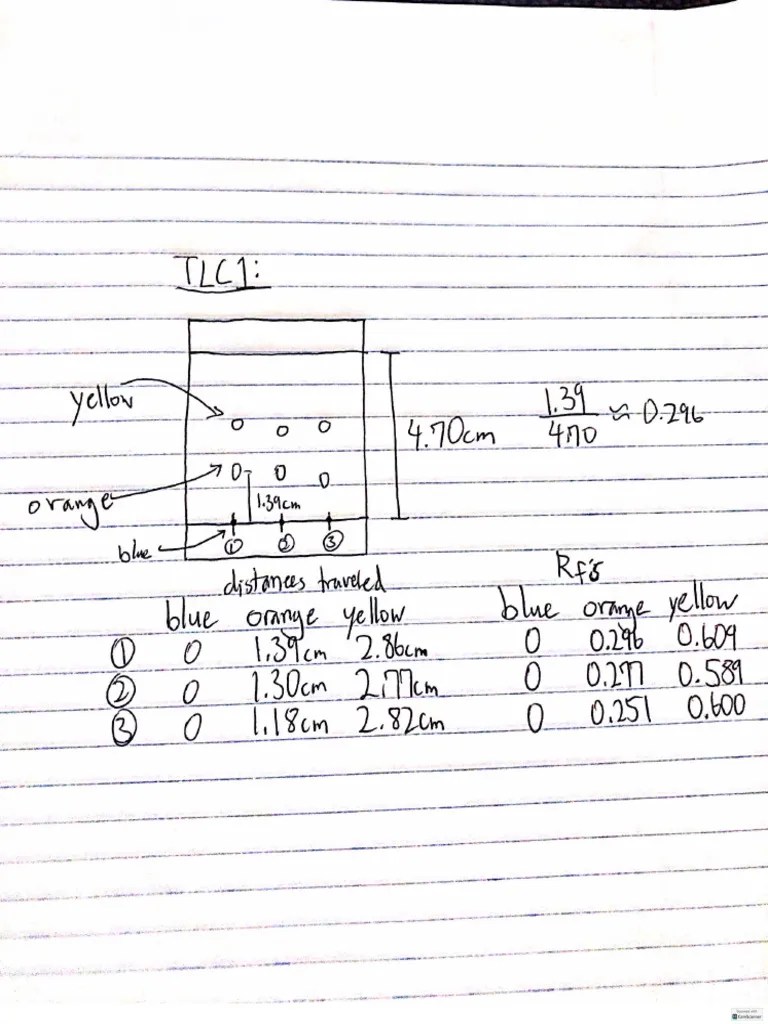 TLC1:
yellow
4.70cm
1.39
4.70
≈ 0.296
orange
1.39cm
blue
① ② ③
distances traveled
Rf's
blue orange yellow
blue orange yellow
① 0 1.39cm 2.86cm 0 0.296 0.609
② 0 1.30cm 2.77cm 0 0.277 0.589
③ 0 1.18cm 2.82cm 0 0.251 0.600
CamScanner